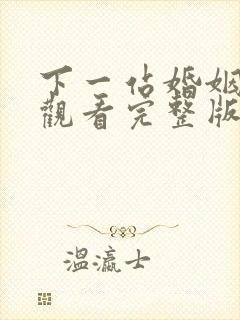 下一站婚姻
觀看完整版
溫瀛士